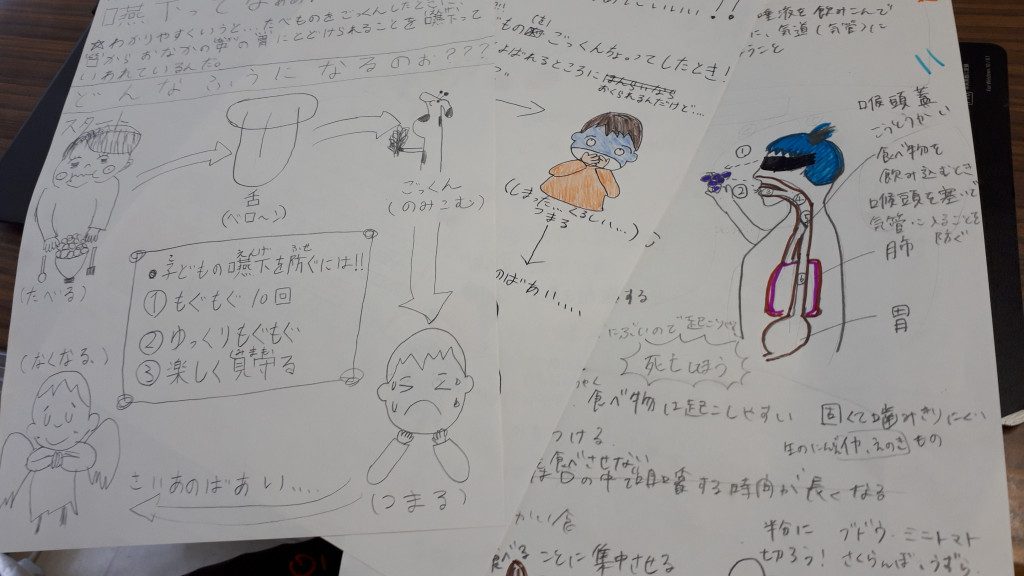 嚥下ってなあ
☆わかりやすくいうと…たべものをごっくんしたとき、
おなかの
胃にとどけられることを嚥下って
いわれているんだ。
どんなふうになるのぉ???
スタート
(たべる)
舌
(ベロ〜)
ごっくん
(のみこむ)
えんげ
ふせ
●子どもの嚥下を防ぐには!!
①もぐもぐ10回
②ゆっくりもぐもぐ
③楽しく
(つまる)
さいあのばあい....
(なくなる、)
いいいい!!
ごっくんちょってしたとき!
よばれるところに
おくられるんだけど…
(しまった…くるしい...)
つまる
のばあい....
する
唾液を飲み込んで
に、気道(気管)に
うこと
①
②
喉頭蓋
こうとうがい
食べ物を
飲み込むとき
喉頭を塞いで
気管に入ることを
防ぐ
肺
胃
にぶいので起こりやすい
死亡しほう
食べ物は起こしやすい
固くて噛みきりにくい
生のにんじん
えのきもの
つける
食べさせない
口の中で咀嚼する時間が長くなる
がい食
食べることに集中させる
半分に
切ろう!
ブドウ・ミニトマト
さくらんぼ、うずら